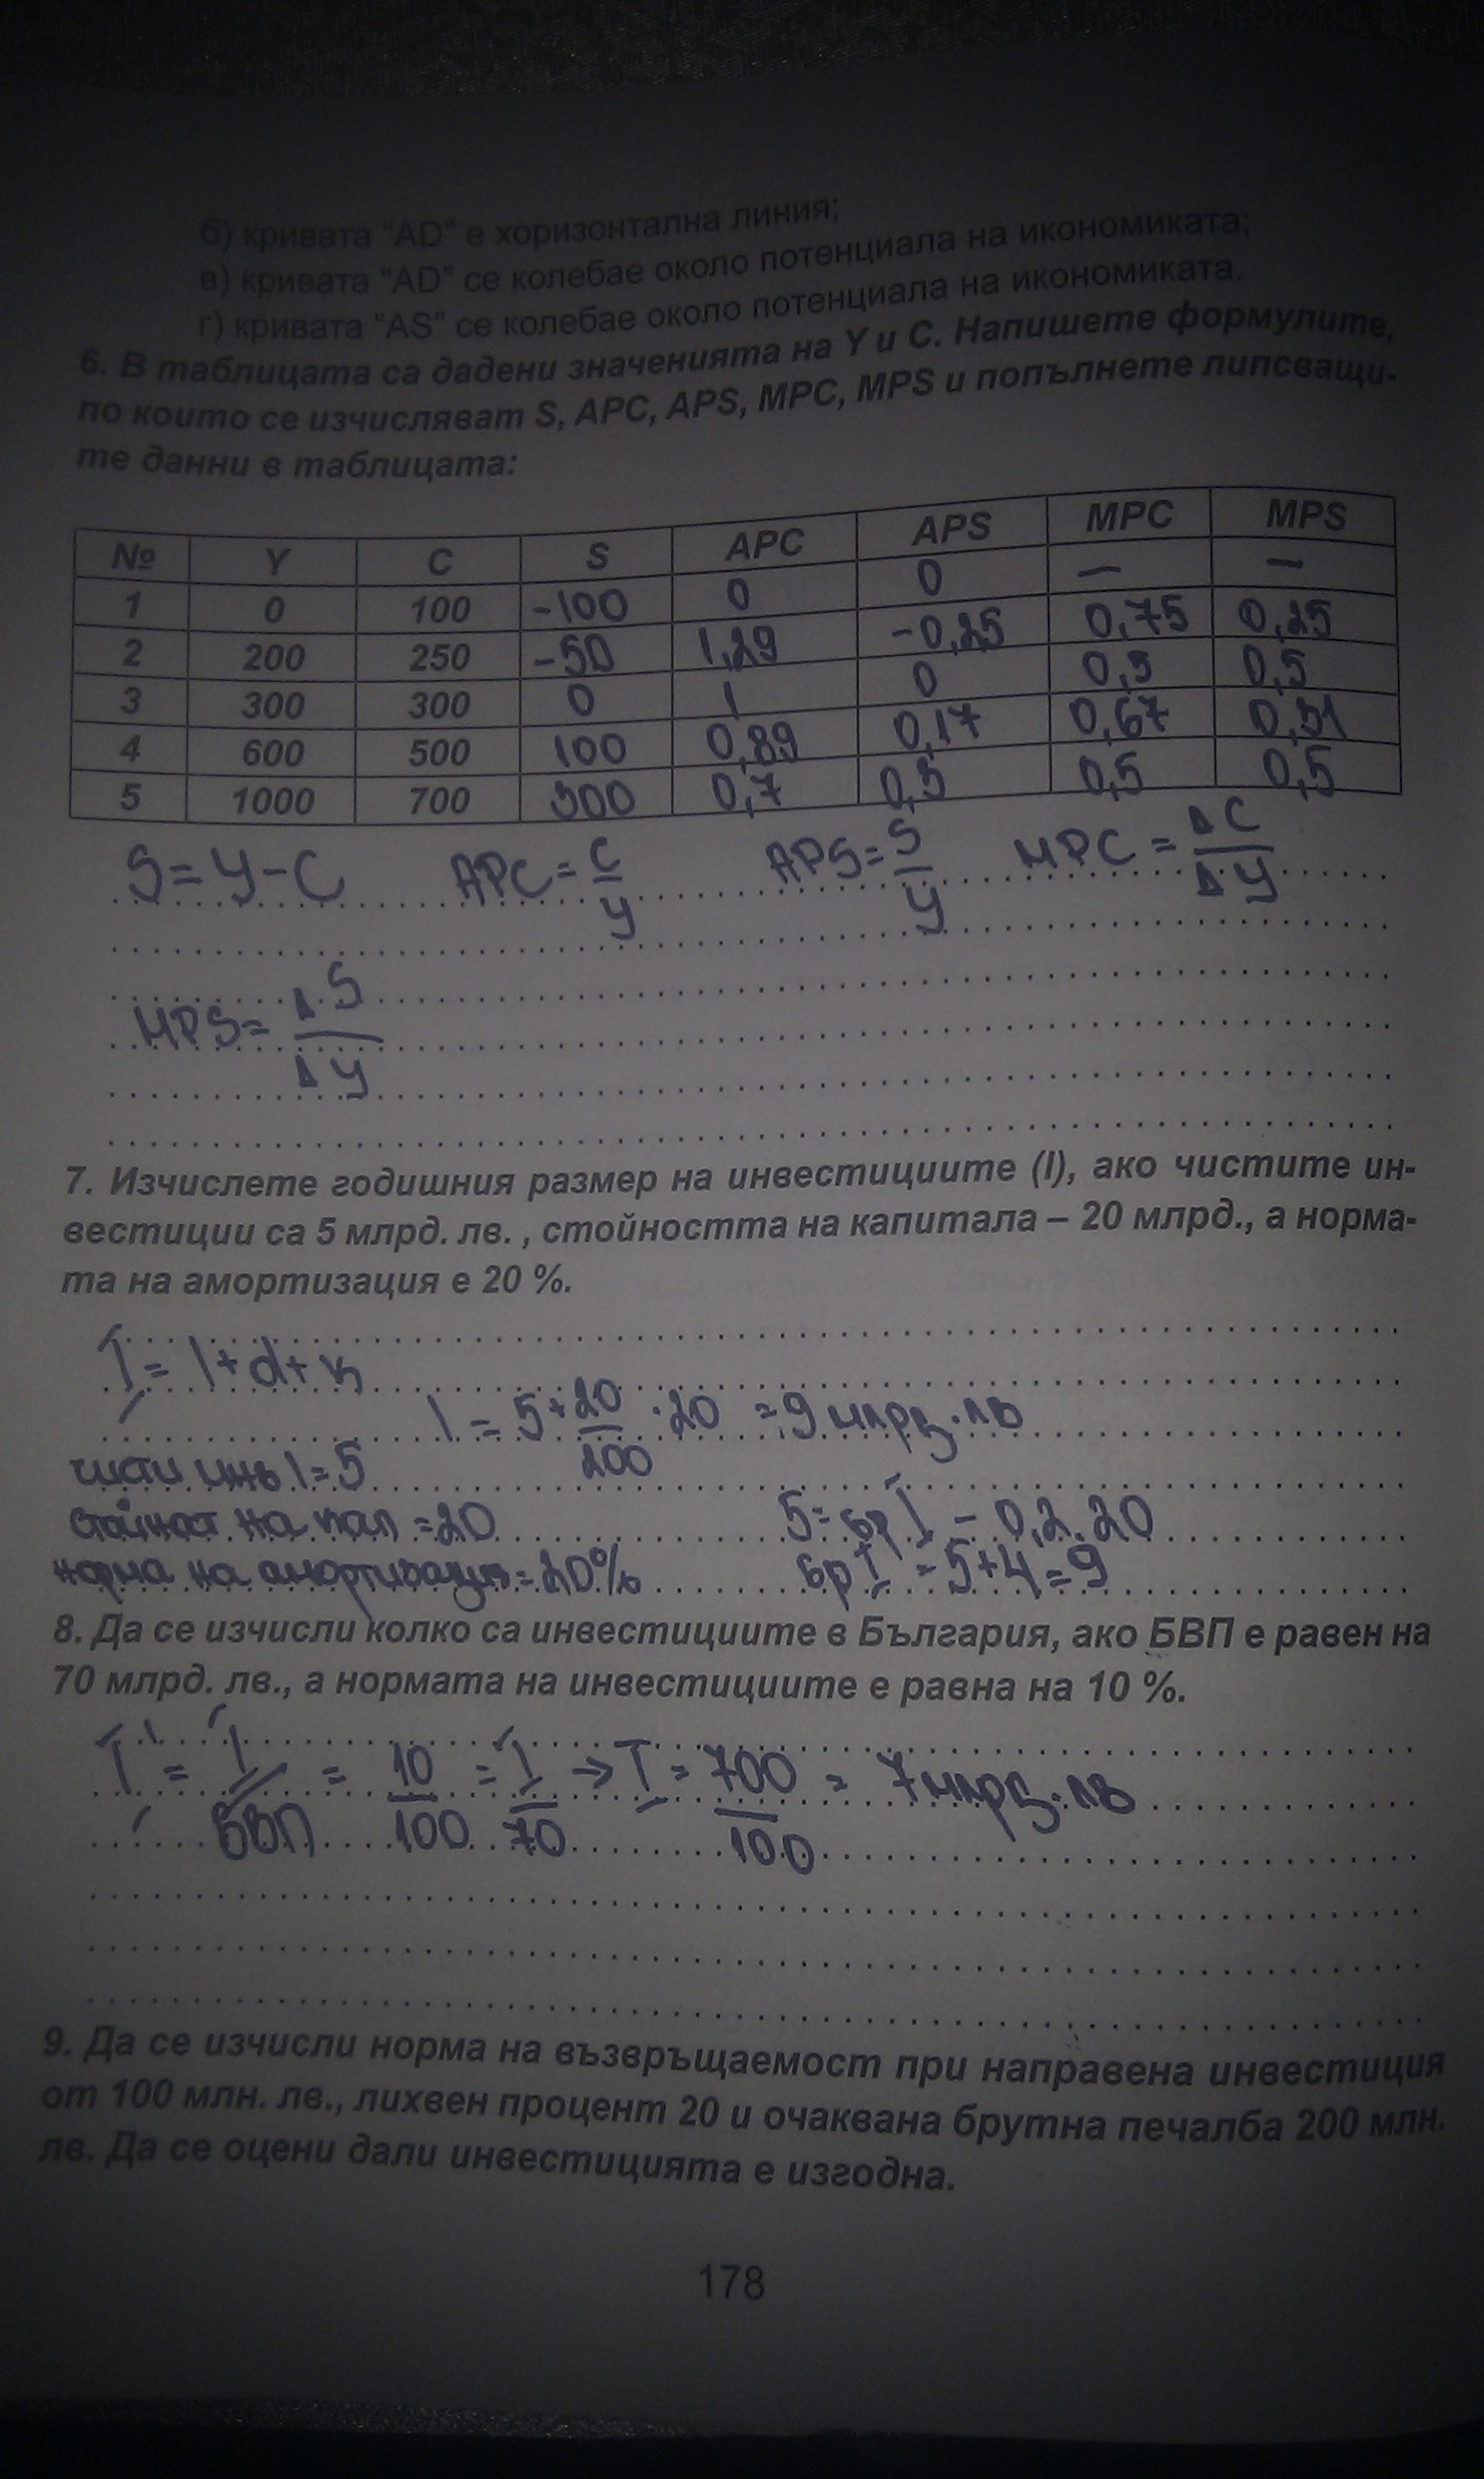 б) кривата “AD” е хоризонтална линия;
в) кривата “AD” се колебае около потенциала на икономиката;
г) кривата “AS” се колебае около потенциала на икономиката.
6. В таблицата са дадени значенията на Y и C. Напишете формулите,
по които се изчисляват S, APC, APS, MPC, MPS и попълнете липсващи-
те данни в таблицата:
№ Y C S APC APS MPC MPS
1 0 100 -100 0 0 — —
2 200 250 -50 1,29 -0,25 0,75 0,25
3 300 300 0 1 0 0,5 0,5
4 600 500 100 0,89 0,17 0,67 0,31
5 1000 700 300 0,7 0,3 0,5 0,5
S = У - C APC = C/У APS = S/У MPC = ΔC/ΔУ
MPS = ΔS/ΔУ
7. Изчислете годишния размер на инвестициите (I), ако чистите ин-
вестиции са 5 млрд. лв. , стойността на капитала – 20 млрд., а норма-
та на амортизация е 20 %.
I = I + d + к
I = 5 + 20/100 . 20 = 9 млрд. лв
чисти инв I = 5
стойност на кап = 20 5 = бр I - 0,2.20
норма на амортизация = 20% бр I = 5+4 = 9
8. Да се изчисли колко са инвестициите в България, ако БВП е равен на
70 млрд. лв., а нормата на инвестициите е равна на 10 %.
I' = I/БВП = 10/100 = I/70 → I = 700/100 = 7 млрд. лв
9. Да се изчисли норма на възвръщаемост при направена инвестиция
от 100 млн. лв., лихвен процент 20 и очаквана брутна печалба 200 млн.
лв. Да се оцени дали инвестицията е изгодна.
178